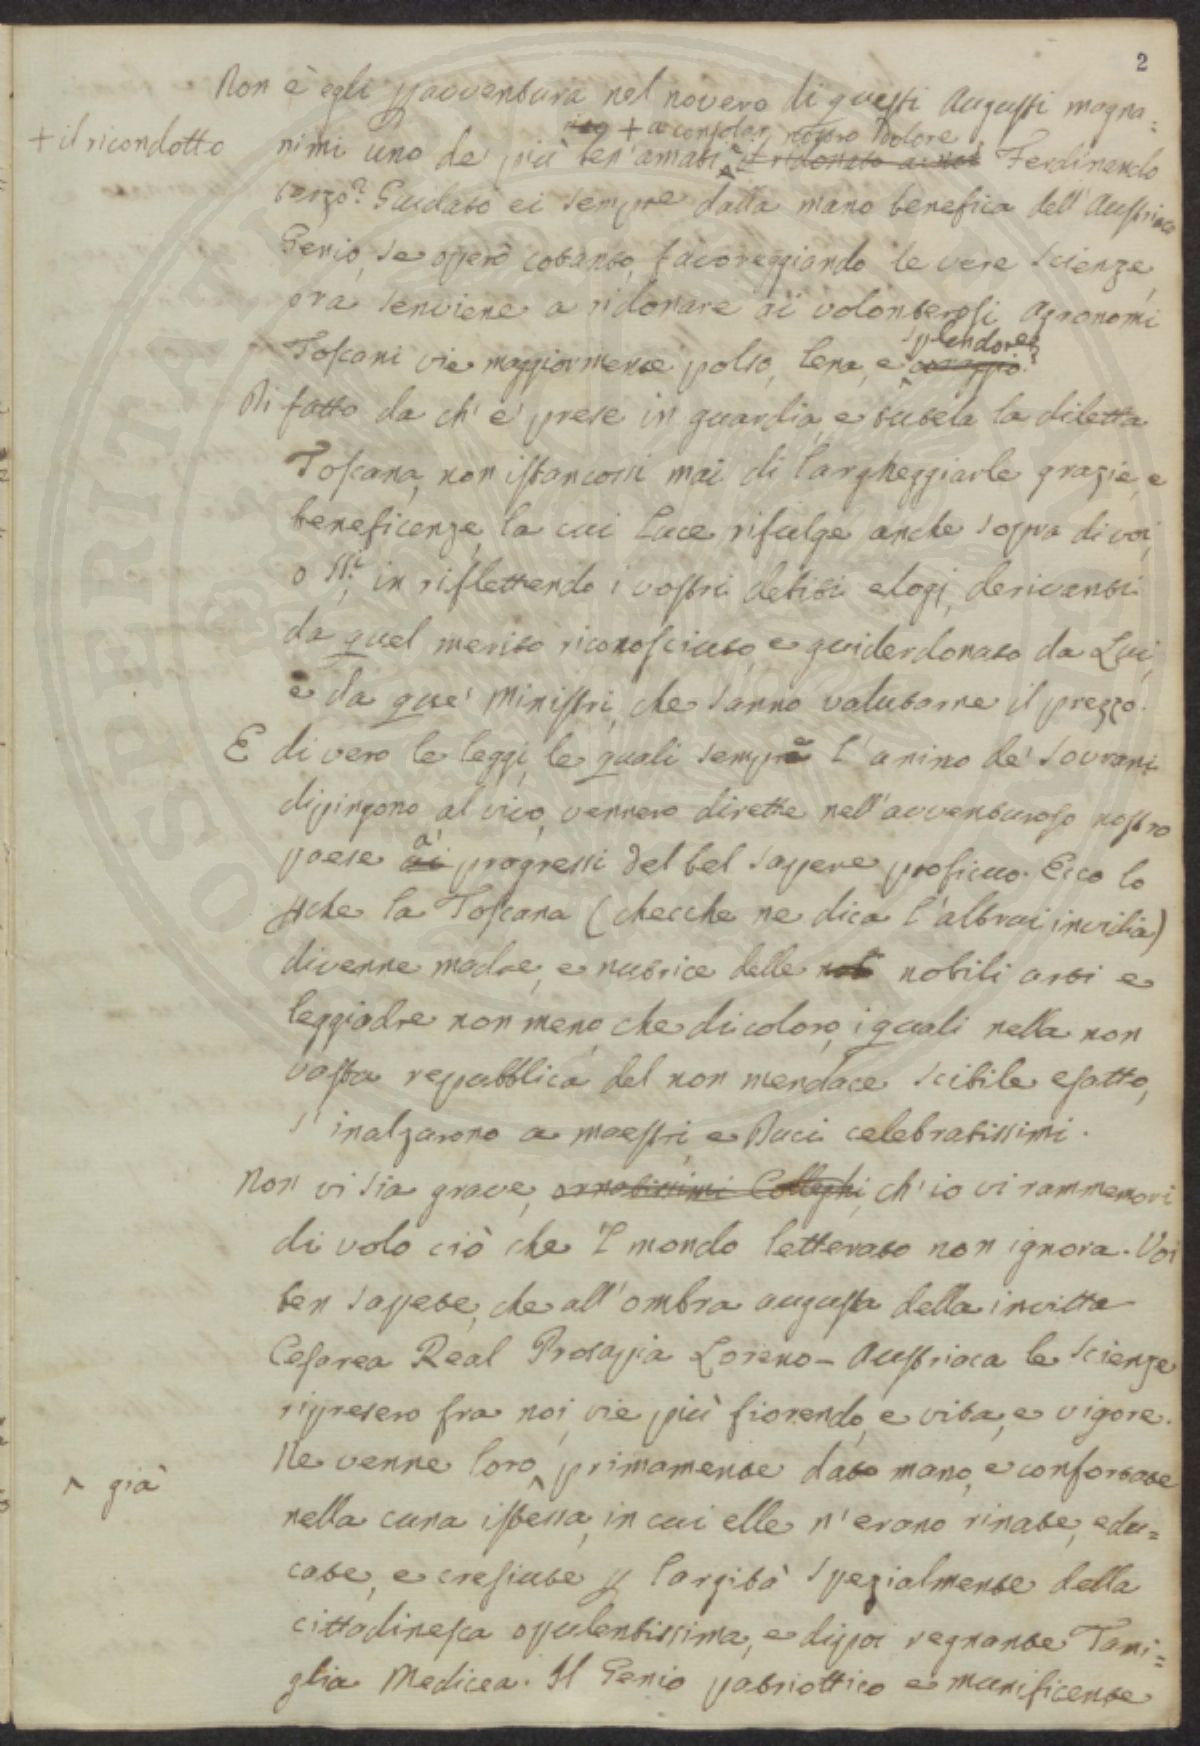 2
Non è egli pavventura nel novero di questi Augusti magna=
+ a consolar nostro dolore
+ il ricondotto
nimi uno de' più ben'amati ^ ridonato a noi Ferdinando
terzo? Guidato ei sempre dalla mano benefica dell'Austriaco
Genio, se operò cotanto, favoreggiando le vere scienze,
ora senviene a ridonare ai volonterosi Agronomi
splendore?
Toscani vie maggiormente polso, lena, e ^ coraggio?
Di fatto da ch'e' prese in guardia, e tutela la diletta
Toscana, non istancossi mai di largheggiarle grazie, e
beneficenze, la cui luce rifulge anche sopra di voi,
o SS.i, in riflettendo i vostri debiti elogi, derivanti
da quel merito riconosciuto, e guiderdonato da Lui,
e da que' Ministri, che sanno valutarne il prezzo.
E di vero le leggi, le quali sempre l'animo de' Sovrani
dipingono al vivo, vennero dirette nell'avventuroso nostro
a'
paese ai progressi del bel sapere proficuo. Ecco lo
pche la Toscana (checche ne dica l'altrui invidia)
divenne madre, e nutrice delle nob nobili arti e
leggiadre non meno, che di coloro, i quali nella non
vasta repubblica del non mendace scibile esatto,
s'inalzarono a maestri, e Duci celebratissimi.
Non vi sia grave, ornatissimi Colleghi, ch'io vi rammemori
di volo ciò che 'l mondo letterato non ignora. Voi
ben sapete, che all'ombra augusta della invitta
Cesarea Real Prosapia Loreno-Austriaca le scienze
ripresero fra noi, vie più fiorendo, e vita, e vigore.
^ già
Ne venne loro ^ primamente dato mano, e confortate
nella cuna istessa, in cui elle n'erano rinate, edu=
cate, e cresciute p largità spezialmente della
cittadinesca opulentissima, e dipoi regnante Fami=
glia Medicea. Il Genio patriottico e munificente